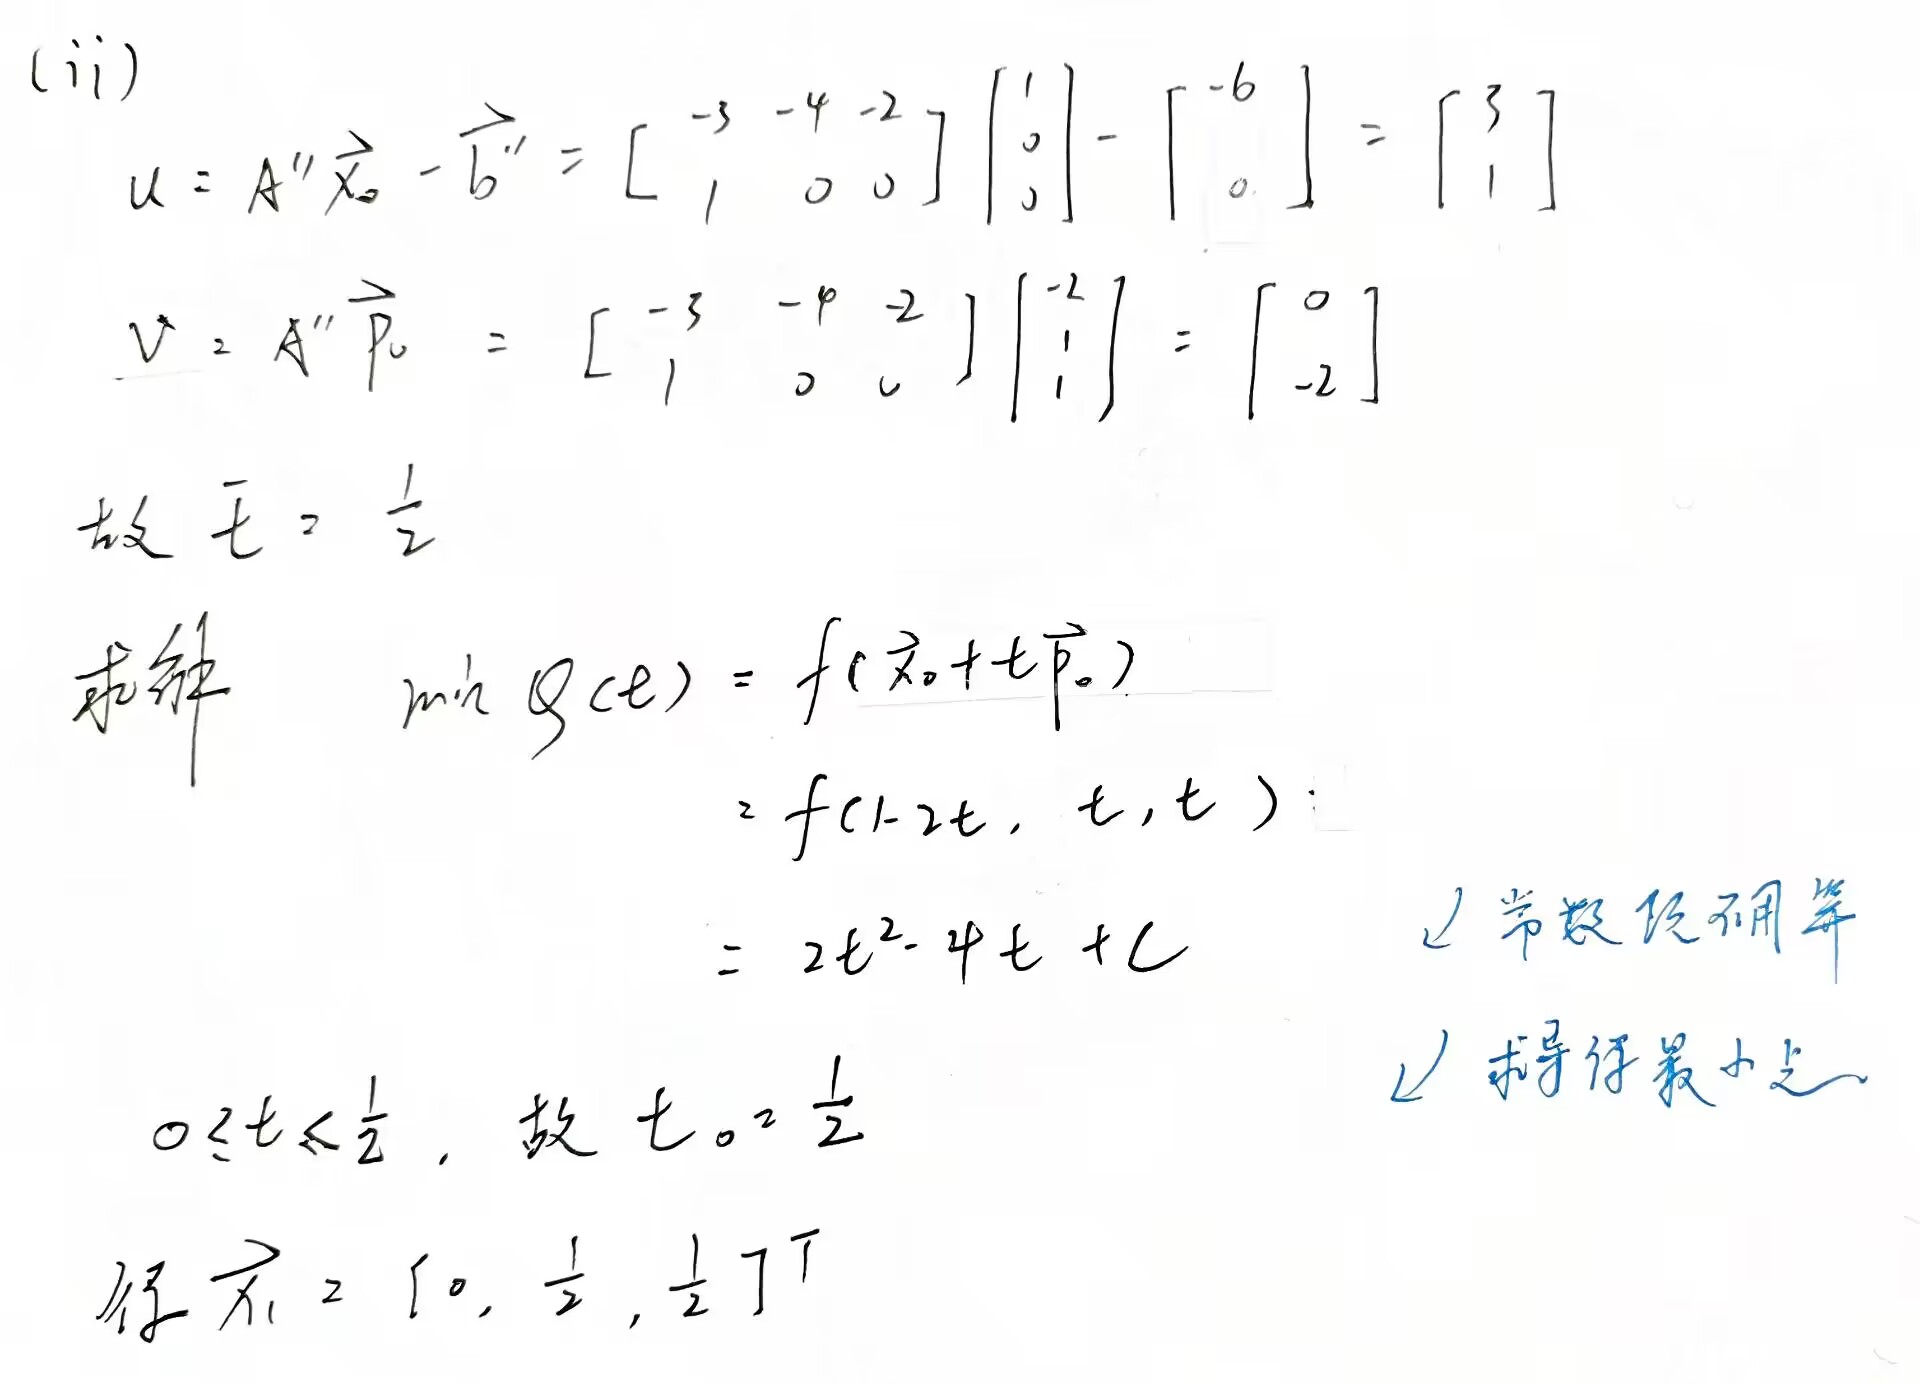 (ii)
u = A'' x⃗₀ - b⃗'' = [ -3 -4 -2 ; 1 0 0 ] [ 1 ; 0 ; 0 ] - [ -6 ; 0 ] = [ 3 ; 1 ]
v = A'' p⃗₀ = [ -3 -4 -2 ; 1 0 0 ] [ -2 ; 1 ; 1 ] = [ 0 ; -2 ]
故 t̄ = 1/2
求解 min φ(t) = f(x⃗₀ + t p⃗₀)
= f(1-2t, t, t)
= 2t² - 4t + C
↙ 常数项不用算
↙ 求导得最小点
0 ≤ t ≤ 1/2, 故 t₀ = 1/2
得 x⃗₁ = [0, 1/2, 1/2]ᵀ